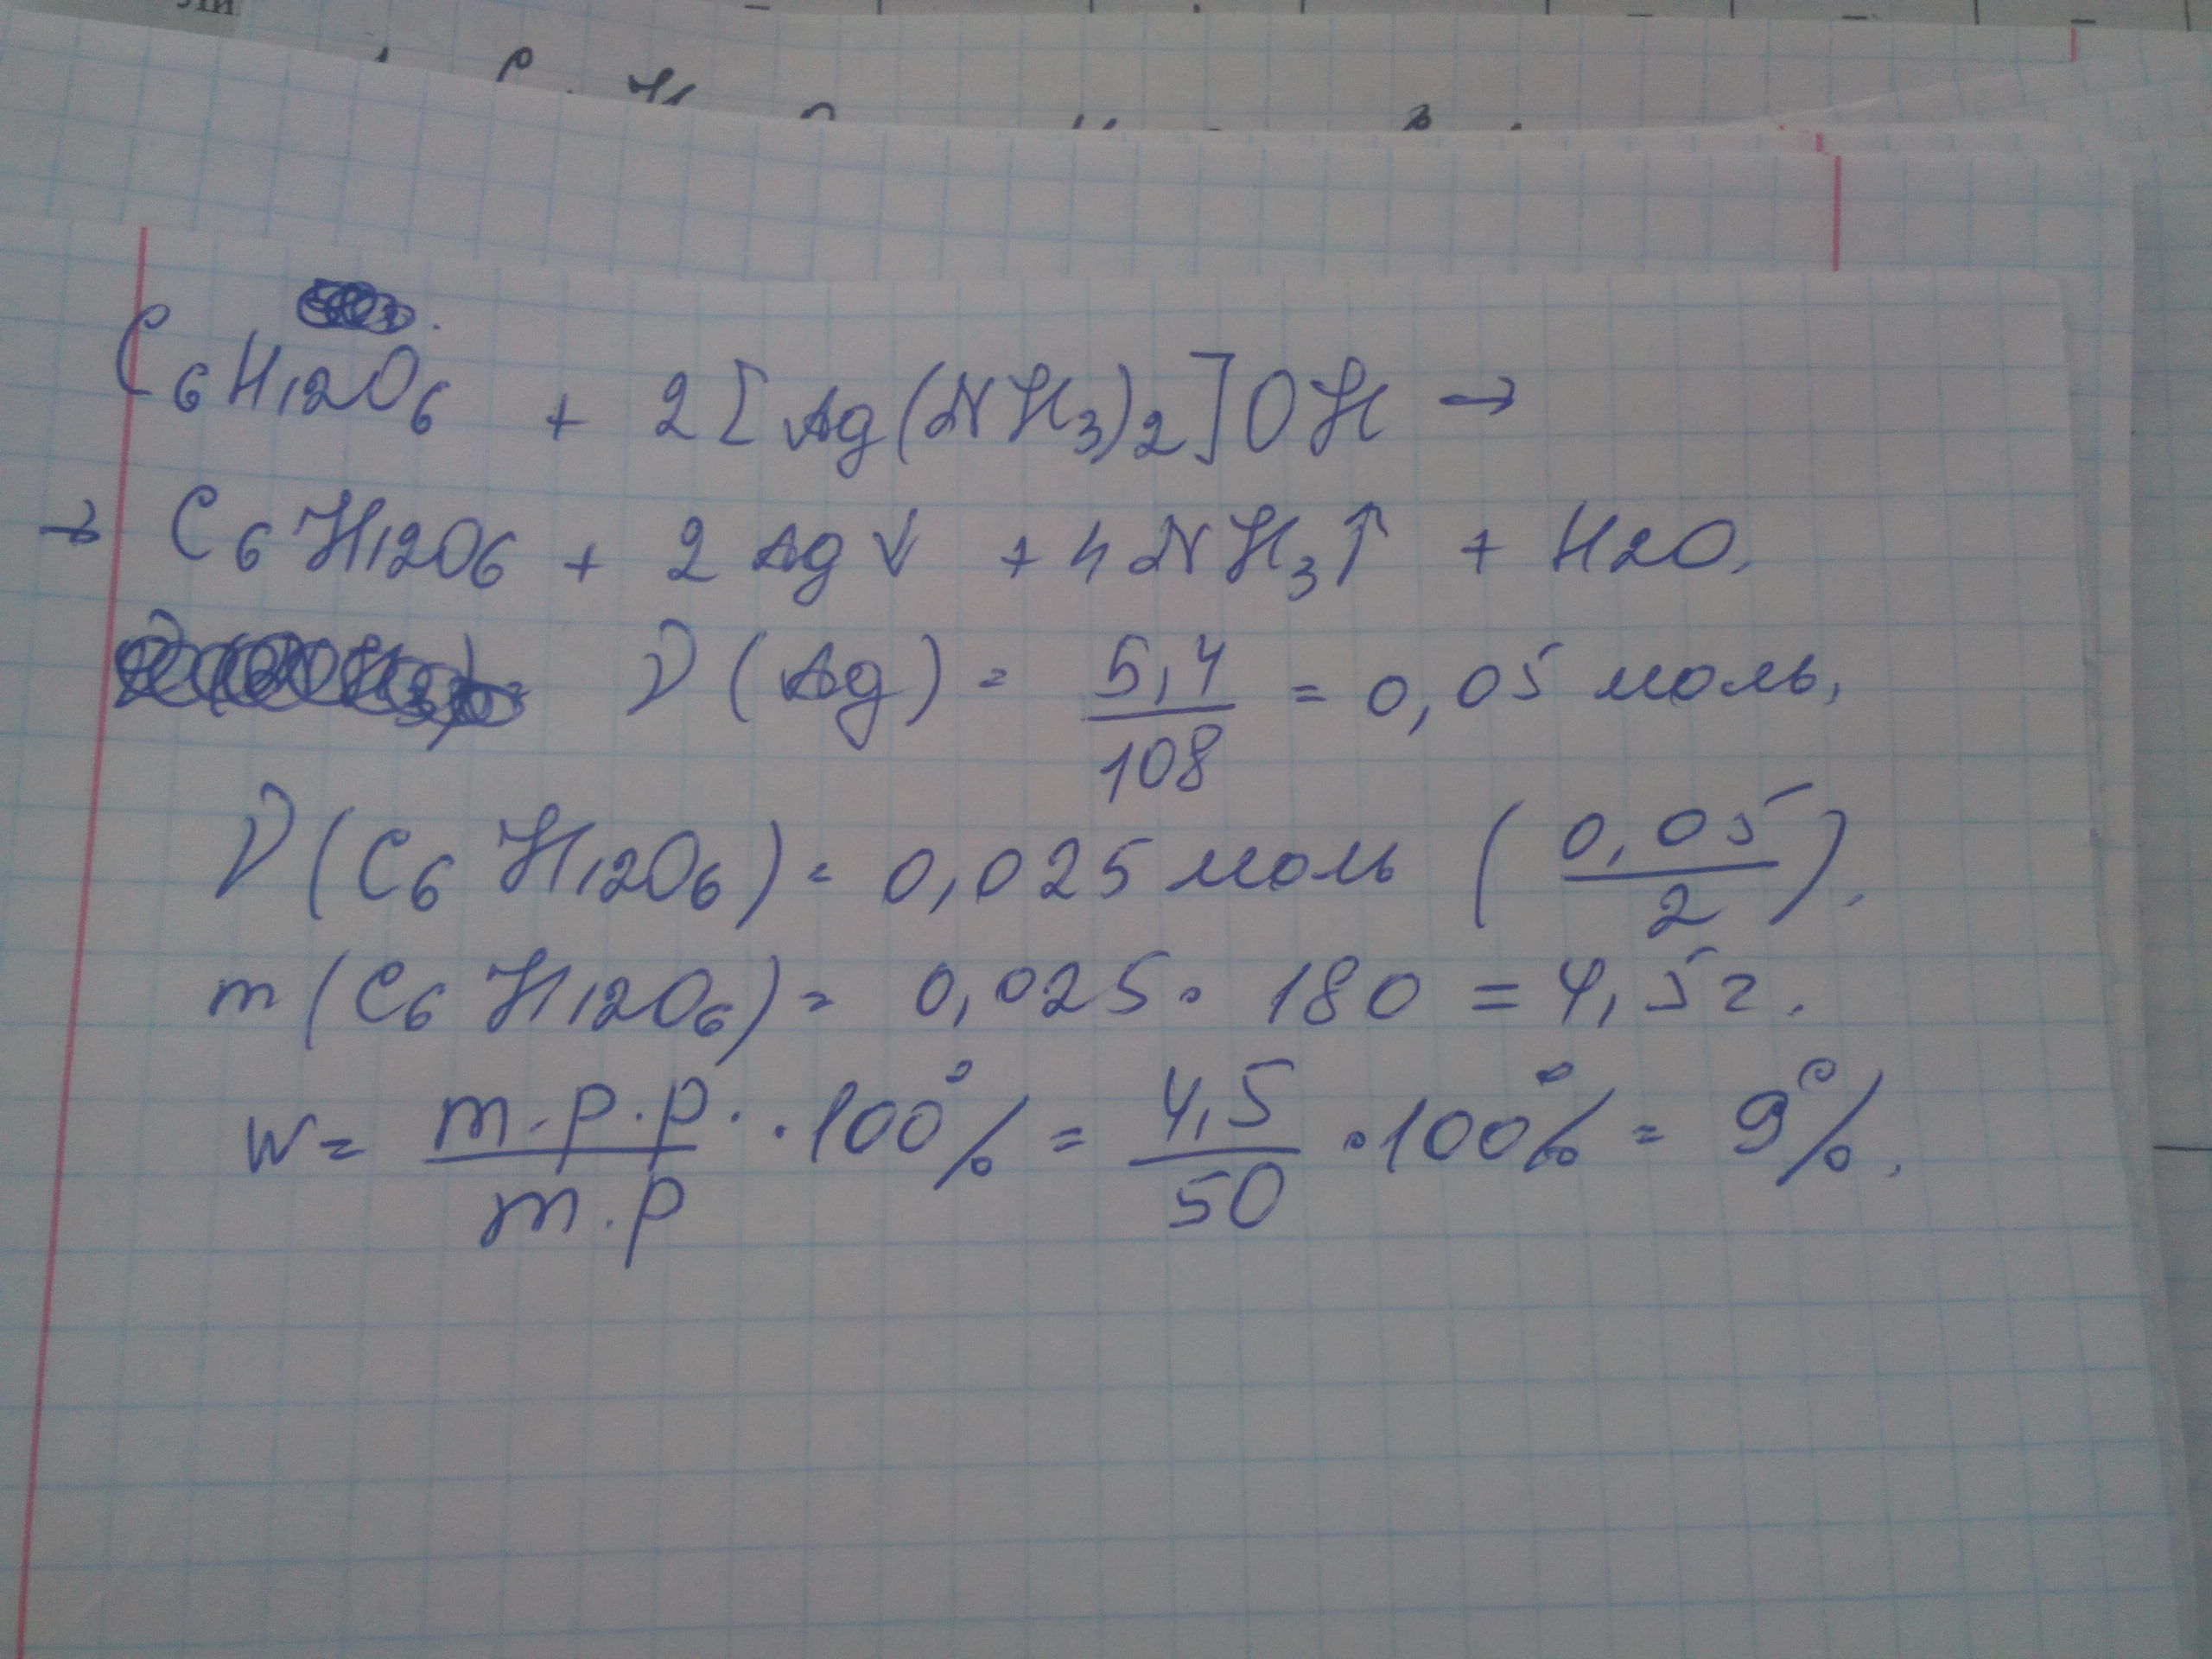 ли
C₆H₁₂O₆ + 2[Ag(NH₃)₂]OH →
→ C₆H₁₂O₆ + 2Ag↓ + 4NH₃↑ + H2O.
ν(Ag) = 5,4/108 = 0,05 моль,
ν(C₆H₁₂O₆) = 0,025 моль (0,05/2).
m(C₆H₁₂O₆) = 0,025 · 180 = 4,5г.
W = m.p.p./m.p · 100% = 4,5/50 · 100% = 9%.